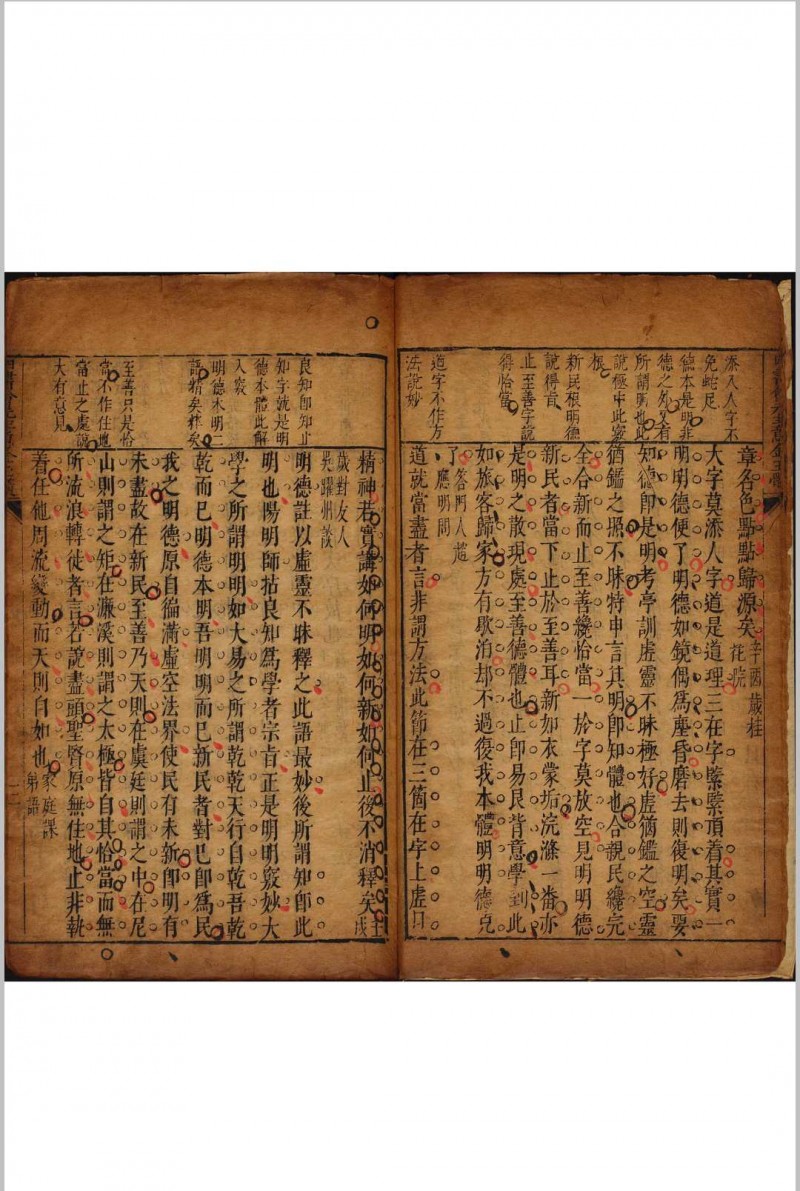 添入人字不
免蛇足
德本是明非
德之外又有
所謂明也此
說極中此竅
根
新民根明德
說得旨
止至善字說
得恰當
道字不作方
法說妙
章各色點點歸源矣
辛酉歲桂
花院
大字莫添人字道是道理三在字緊緊頂着其實一
明明德便了明德如鏡偶爲塵昏磨去則復明矣要
知德卽是明考亭訓虛靈不昧極好虛猶鑑之空靈
猶鑑之照不昧特申言其明卽知體也合親民纔完
全合新而止至善纔恰當一於字莫放空見明明德
新民者當下止於至善耳新如衣蒙垢浣滌一番亦
是明之散現處至善德體也止卽易艮背意學到此
如旅客歸家方有歇泊却不過復我本體明明德克
了
答門人趙
應明問
道就當盡者言非謂方法此節在三箇在字上虛口
良知卽知止
知字就是明
德本體此解
入竅
明德本明二
語精矣釋矣
至善只是恰
當不作住地
當止之處說
大有意見
精神若實講如何明如何新如何止後不消釋矣
壬戌
歲對友人
吳躍州談
明德註以虛靈不昧釋之此語最妙後所謂知卽此
明也陽明師拈良知爲學者宗旨正是明明竅妙大
學之所謂明明如大易之所謂乾乾天行自乾吾乾
乾而已明德本明吾明明而已新民者對已卽爲民
我之明德原自徧滿虛空法界使民有未新卽明有
未盡故在新民至善乃天則在虞廷則謂之中在尼
山則謂之矩在濂溪則謂之太極皆自其恰當而無
所流浪轉徒者言若說盡頭聖賢原無住地止非執
着住他周流變動而天則自如也
家庭課
弟語